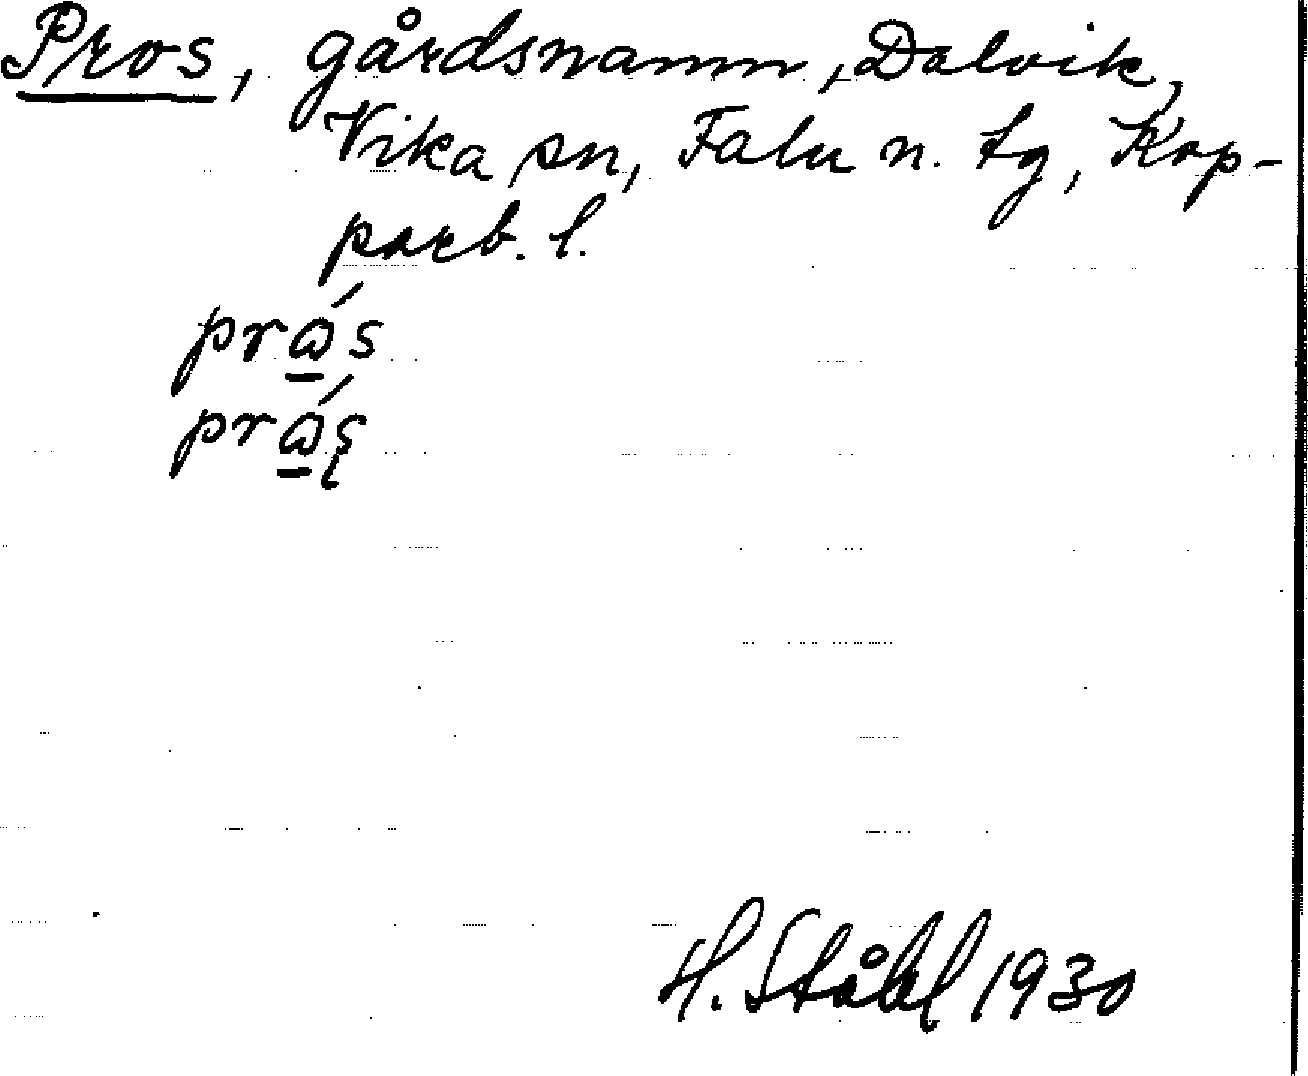 Pros, gårdsnamn, Dalvik,
Vika sn, Falu n. tg, Kop-
parb. l.
prά̲s
prά̲s̨
H. Ståhl 1930